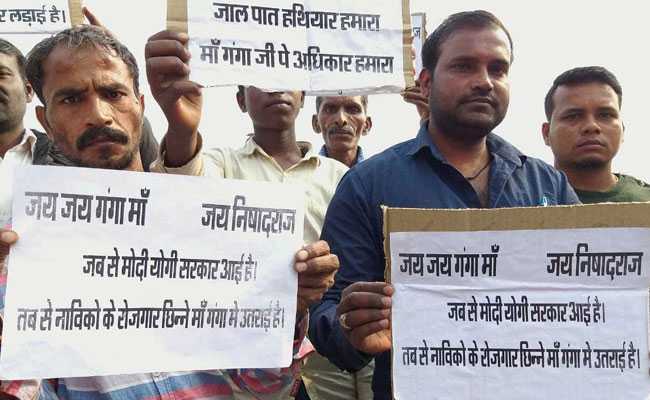 र लड़ाई है।
जाल पात हथियार हमारा
माँ गंगा जी पे अधिकार हमारा
जय जय गंगा माँ जय निषादराज
जब से मोदी योगी सरकार आई है।
तब से नाविको के रोजगार छिन्ने माँ गंगा मे उतराई है।
जय जय गंगा माँ जय निषादराज
जब से मोदी योगी सरकार आई है।
तब से नाविको के रोजगार छिन्ने माँ गंगा मे उतराई है।